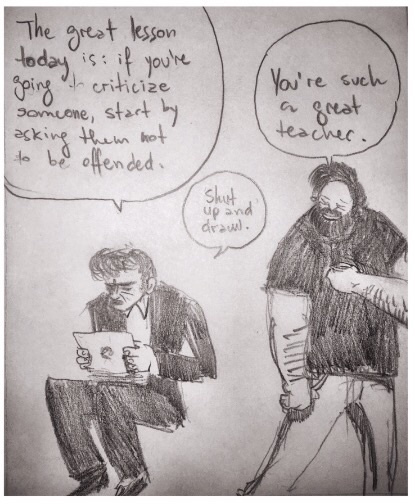 The great lesson
today is: if you're
going to criticize
someone, start by
asking them not
to be offended.
You're such
a great
teacher.
Shut
up and
draw.